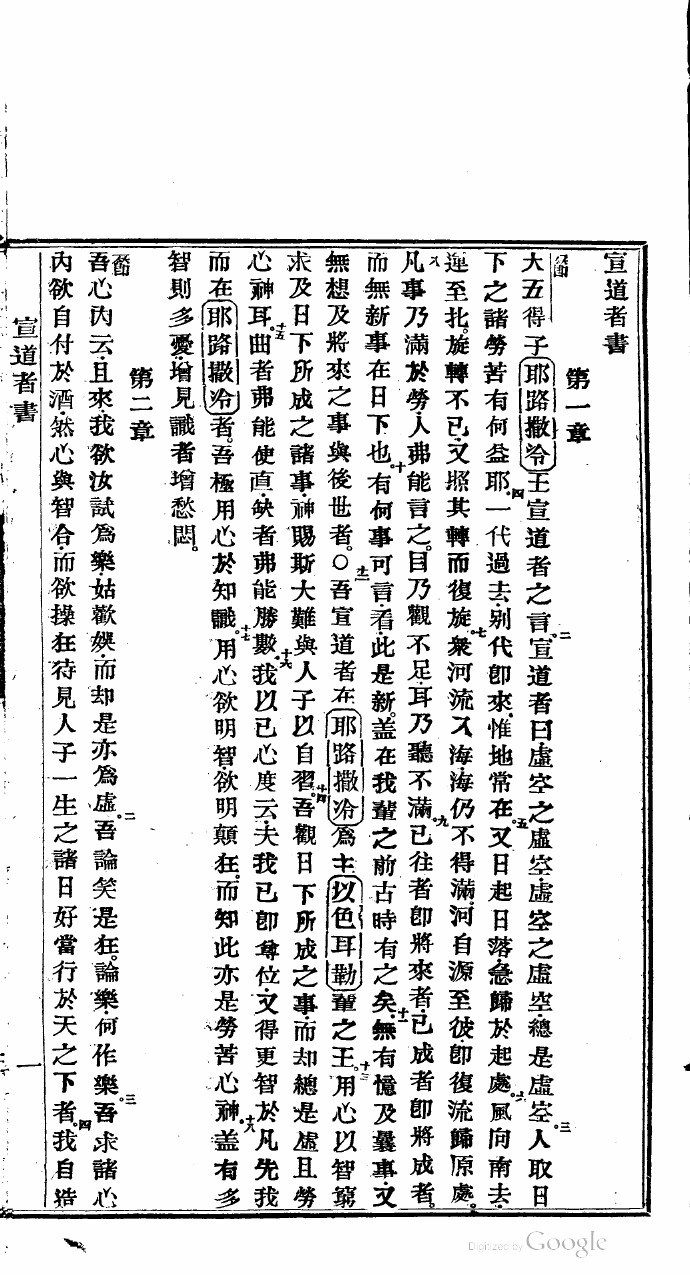 宣道者書
第一章
一節
大五得子耶路撒冷王宣道者之言二宣道者曰虛空之虛空虛空之虛空總是虛空三人取日
下之諸勞苦有何益耶四一代過去別代即來惟地常在五又日起日落急歸於起處六風向南去
運至北旋轉不已又照其轉而復旋七衆河流入海海仍不得滿河自源至彼即復流歸原處
八凡事乃滿於勞人弗能言之目乃觀不足耳乃聽不滿九已往者即將來者已成者即將成者
而無新事在日下也十有何事可言看此是新蓋在我輩之前古時有之矣十一無有憶及曩事又
無想及將來之事與後世者○十二吾宣道者在耶路撒冷爲主以色耳勒輩之王十三用心以智窮
求及日下所成之諸事神賜斯大難與人子以自習十四吾觀日下所成之事而却總是虛且勞
心神耳十五曲者弗能使直缺者弗能勝數十六我以己心度云夫我已即尊位又得更智於凡先我
而在耶路撒冷者吾極用心於知識十七用心欲明智欲明顛狂而知此亦是勞苦心神十八蓋有多
智則多憂增見識者增愁悶
第二章
一節
吾心內云且來我欲汝試爲樂姑歡娛而却是亦爲虛二吾論笑是狂論樂何作樂三吾求諸心
內欲自付於酒然心與智合而欲操狂待見人子一生之諸日好當行於天之下者四我自造
宣道者書
一
Digitized by Google